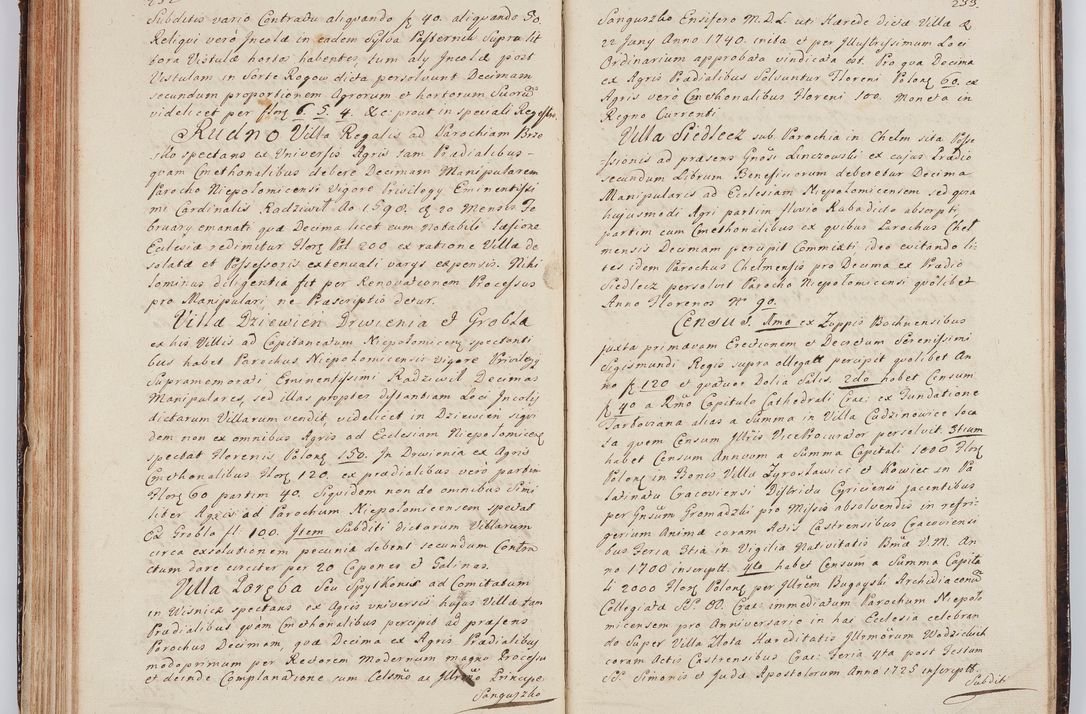 232.
Subditis vario Contractu aliquando f 40. aliquando 50.
Reliqui verò Incolæ in eadem Sylva Pasternik supra lit
tora Vistulæ hortos habentes, tum alij Incolæ post
Vistulam in sorte Rogow dicta persolvunt Decimam
secundum proportionem Agrorum et hortorum suorũ
videlicet per flor 6. 5. 4. &c: prout in speciali Regestro
Rudno Villa Regalis ad Parochiam Brze
sko spectans ex Universis Agris tam Prædialibus
quam Cmethonalibus debere Decimam Manipularem
Parocho Niepolomicensi Vigore Privilegy Eminentissi
mi Cardinalis Radziwił Ao 1590. d 20 Mensis Fe
bruary emanati quæ Decima licet cum notabili læsione
Ecclesiæ redimitur flor Pol 200 ex ratione Villæ de
solatæ et Possessoris extenuati varys expensis. Nihi
lominus diligentia fit per Renovationem Processus
pro Manipulari ne Præscriptio detur.
Villa Dziewień Drwienia & Grobla
ex his Villis ad Capitaneatum Niepolomicen spectanti
bus habet Parochus Niepolomicensis vigore Privilegij
Supramemorati Eminentissimi Radziwił Decimas
Manipulares, sed illas propter distantiam Loci Incolis
dictarum Villarum vendit, videlicet in Dziewień siqui
dem non ex omnibus Agris ad Ecclesiam Niepolomicen
spectat Florenis Polon 150. In Drwienia ex Agris
Cmethonalibus flor 120. ex prædialibus verò partim
Flor 60 partim 40. Siquidem non de omnibus Simi
liter Agris ad Parochum Niepolomicensem spectat
Ex Grobla fl. 100. Item Subditi dictarum Villarum
circa exsolutionem pecuniæ debent secundum Contra
ctum dare circiter per 20 Capones & Galinas.
Villa Poręba seu Spytkonis ad Comitatum
in Wisnicz spectans ex Agris universis hujus Villæ tam
Prædialibus quàm Cmethonalibus percipit ad præsens
Parochus Decimam, quæ Decima ex Agris Prædialibus
modoprimum per Rectorem Modernum magno Processu
et deinde Complanatione cum Celsmo ac Illrmo Principe
Sanguszko
233.
Sanguszko Ensifero M.D.L. uti Hærede dictæ Villæ d
22 Juny Anno 1740. inita et per Illustrissimum Loci
Ordinarium approbata vindicata est. Pro qua Decima
ex Agris Prædialibus Solvuntur Floreni Polon 60. ex
Agris verò Cmethonalibus Floreni 100. Moneta in
Regno Currenti
Villa Siedlecz sub Parochia in Chelm sita Posse
ssionis ad præsens Gnosi Linczowski ex cujus Prædio
secundum Librum Beneficiorum deberetur Decima
Manipularis ad Ecclesiam Niepolomicensem sed quia
hujusmodi Agri partim fluvio Raba dicto absorpti,
partim cum Cmethonalibus ex quibus Parochus Chel
mensis Decimam percipit Commixti ideo evitando li
tes idem Parochus Chelmensis pro Decima ex Prædio
Siedlecz persolvit Parocho Niepolomicensi quolibet
Anno Florenos No 90.
Census. Imo ex Zuppis Bochnensibus
juxta primævam Erectionem & Decretum Serenissimi
Sigismundi Regis supra allegatt percipit quolibet An
no f 120 & quatuor Dolia Salis. 2do habet Censum
f 40 a Rmo Capitulo Cathedrali Crac: ex Fundatione
Tarłoviana alias a Summa in Villa Cudzinowice loca
ta quem Censum Illris ViceProcurator persolvit. 3tium
habet Censum Annuum a Summa Capitali 1000 flor
Polon in Bonis Villæ Zyrosławice & Kowiec in Pa
latinatu Cracoviensi Districtu Cyriciensi jacentibus
per Gnsum Gromadzki pro Missis absolvendis in refri
gerium Animæ coram Actis Castrensibus Cracoviensi
bus Feria 3tia in Vigilia Nativitatis Bmæ V.M. An
no 1700 inscriptt. 4to habet Censum a Summa Capita
li 2000 flor Polon per Illrem Bugayski Archidiaconũ
Collegiatæ SS. OO. Crac: immediatum Parochum Niepoło
micensem pro Anniversario in hac Ecclesia celebran
do super Villa Złota Hæreditatis Illrmorum Wodzickich
coram Actis Castrensibus Crac: Feria 4ta post Festum
SS. Simonis & Judæ Apostolorum Anno 1725 inscriptt.
Subditi